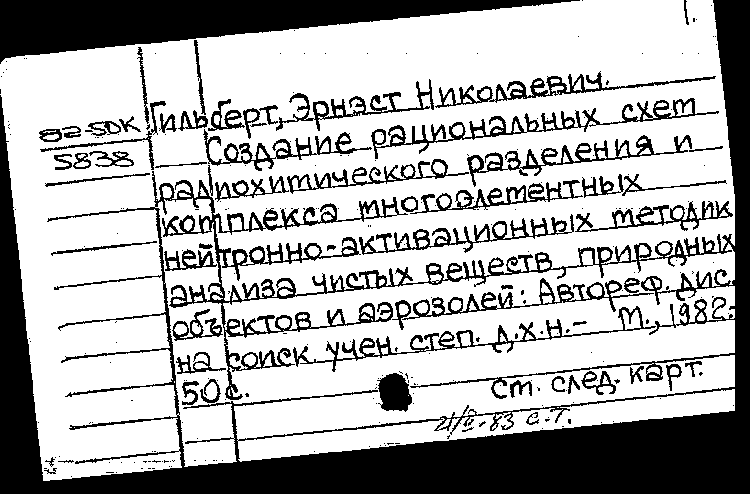 1.
Гильберт, Эрнэст Николаевич.
82-5DK
5838
Создание рациональных схем
радиохимического разделения и
комплекса многоэлементных
нейтронно-активационных методик
анализа чистых веществ, природных
объектов и аэрозолей: Автореф. дис.
на соиск. учен. степ. д.х.н.- М., 1982.-
50с.
ст. след. карт.
21/II-83 С.Т.